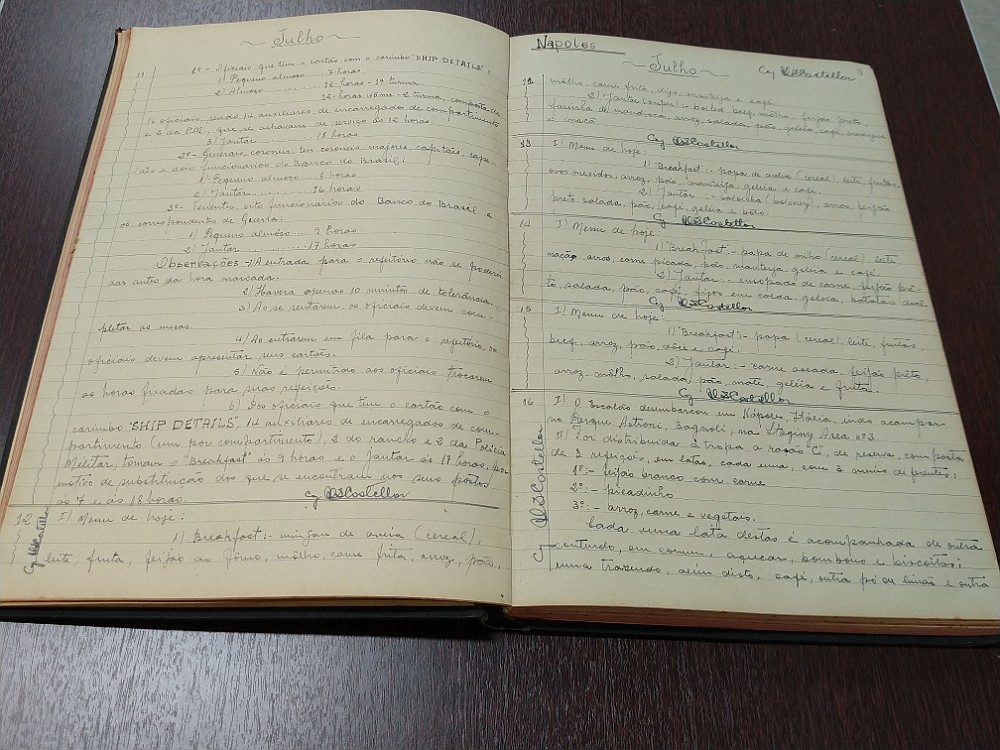 ~ Julho ~
11
1º - Oficiais que têm o cartão com o carimbo "SHIP DETAILS":
1) Pequeno almoço .. 7 horas
2) Almoço ........... 12 horas - 1ª turma
12 horas 45 ms - 2ª turma, composta de
16 oficiais, sendo 14 auxiliares de encarregados de compartimento
e 2 da P.M., que se achavam de serviço às 12 horas.
3) Jantar ........ 18 horas
2º - Generais, coroneis, ten coroneis, majores, capitães, cape-
lães e dois funcionarios do Banco do Brasil:
1) Pequeno almoço .. 8 horas
2) Jantar ........... 16 horas
3º - Tenentes, oito funcionarios do Banco do Brasil e
os correspondentes de Guerra:
1) Pequeno almôço ... 9 horas
2) Jantar ............ 17 horas
Observações - 1) A entrada para o refeitório não se poderá
dar antes da hora marcada.
2) Haverá apenas 10 minutos de tolerância.
3) Ao se sentarem, os oficiais devem com-
pletar as mesas.
4) Ao entrarem em fila para o refeitório, os
oficiais devem apresentar seus cartões.
5) Não é permitido aos oficiais trocarem
as horas fixadas para suas refeições.
6) Dos oficiais que têm o cartão com o
carimbo "SHIP DETAILS", 14 auxiliares de encarregados de com-
partimento (um por compartimento), 2 do rancho e 2 da Polícia
Militar, tomam o "Breakfast" às 9 horas e o Jantar às 17 horas, por
motivo de substituição dos que se encontram nos seus postos
às 7 e às 18 horas.
Castellor
12
I) Menu de hoje:
1) Breakfast:- mingau de aveia (cereal),
leite, fruta, feijão ao fôrno, môlho, carne frita, arroz, pão,
Nápoles
~ Julho ~
Castellor
3
12
môlho, carne frita, manteiga e café.
2) Jantar - boiled beef, môlho, feijão preto,
farinha de mandioca, arroz, salada, pão, geléia, café,
e maçã.
Castellor
13
I) Menu de hoje:
1) "Breakfast":- papa de aveia (cereal), leite, frutas,
ovos mexidos, arroz, pão, manteiga, geléia e café.
2) Jantar :- salsicha, arroz, feijão
preto, salada, pão, café, geléia e bôlo.
Castellor
14
I) Menu de hoje:
1) "Breakfast":- papa de milho (cereal), leite,
maçã, arroz, carne picada, pão, manteiga, geléia e café.
2) Jantar:- ensopado de carne, feijão prê-
to, salada, pão, café, figos em calda, geléia, batatas
Castellor
15
I) Menu de hoje:
1) "Breakfast":- papa (cereal), leite, frutas,
beef, arroz, pão, dôce e café.
2) Jantar:- carne assada, feijão prêto,
arroz, môlho, salada, pão, mate, geléia e fruta.
Castellor
16
I) O Escalão desembarcou em Nápoles, Itália, indo acampar
no Parque Astroni, Bagnoli, na Staging Area nº 3.
II) Foi distribuida à tropa a ração "C", de reserva, composta
de 3 refeições, em latas, cada uma, com 3 menús diferentes:
1º:- feijão branco com carne
2º:- picadinho
3º:- arroz, carne e vegetais.
Cada uma lata destas é acompanhada de outra
contendo, em comum, açucar, bombons e biscoitos;
uma trazendo, além disto, café, outra pó de limão e outra